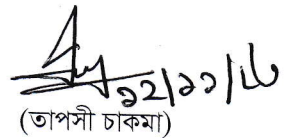 ১২/১১/১৮
(তাপসী চাকমা)